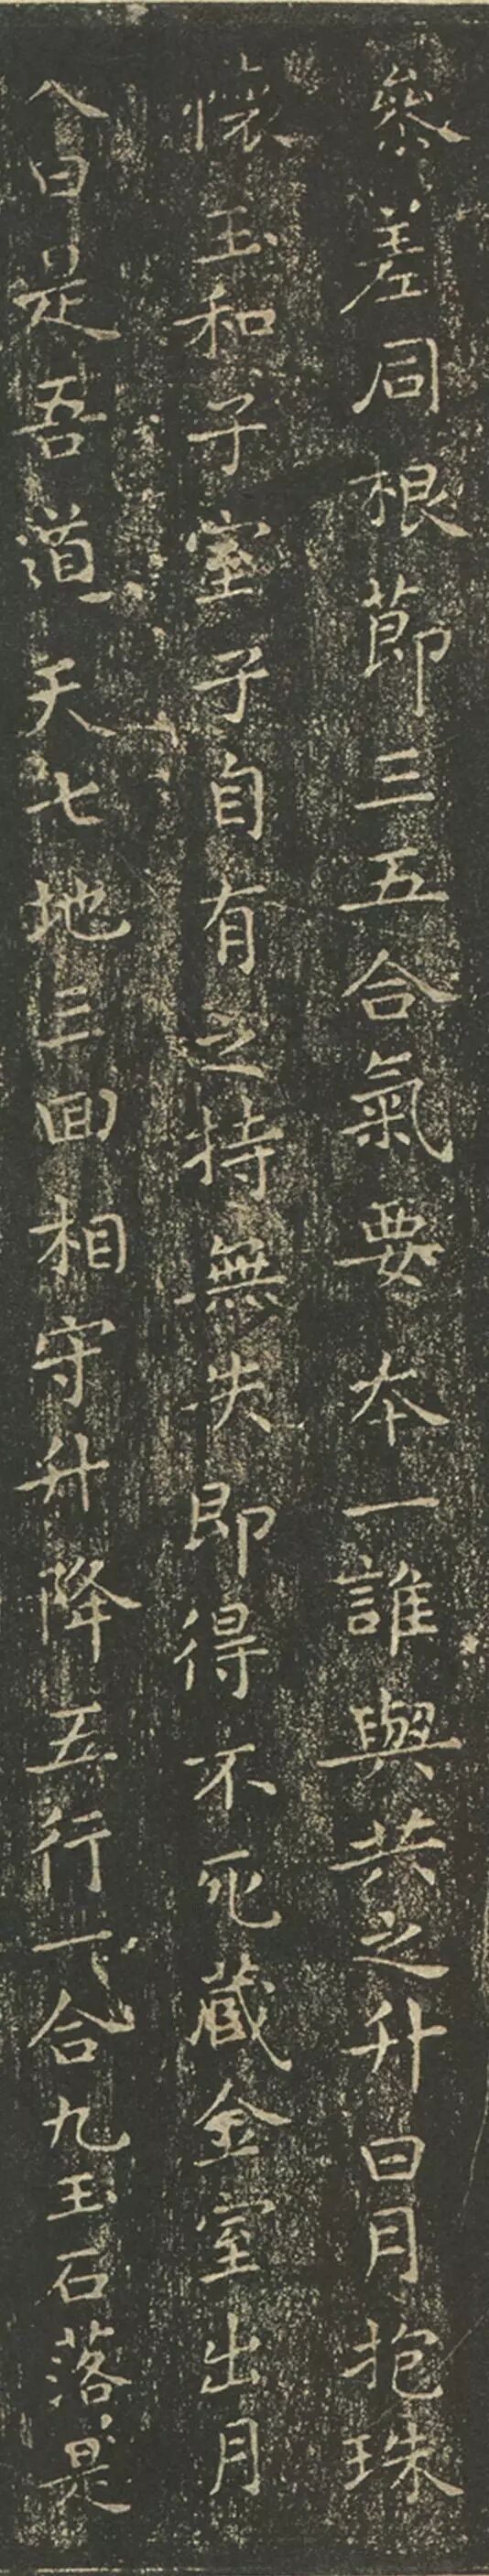 參差同根節三五合氣要本一誰與共之升日月抱珠
懷玉和子室子自有之持無失即得不死藏金室出月
入日是吾道天七地三回相守升降五行一合九玉石落落是